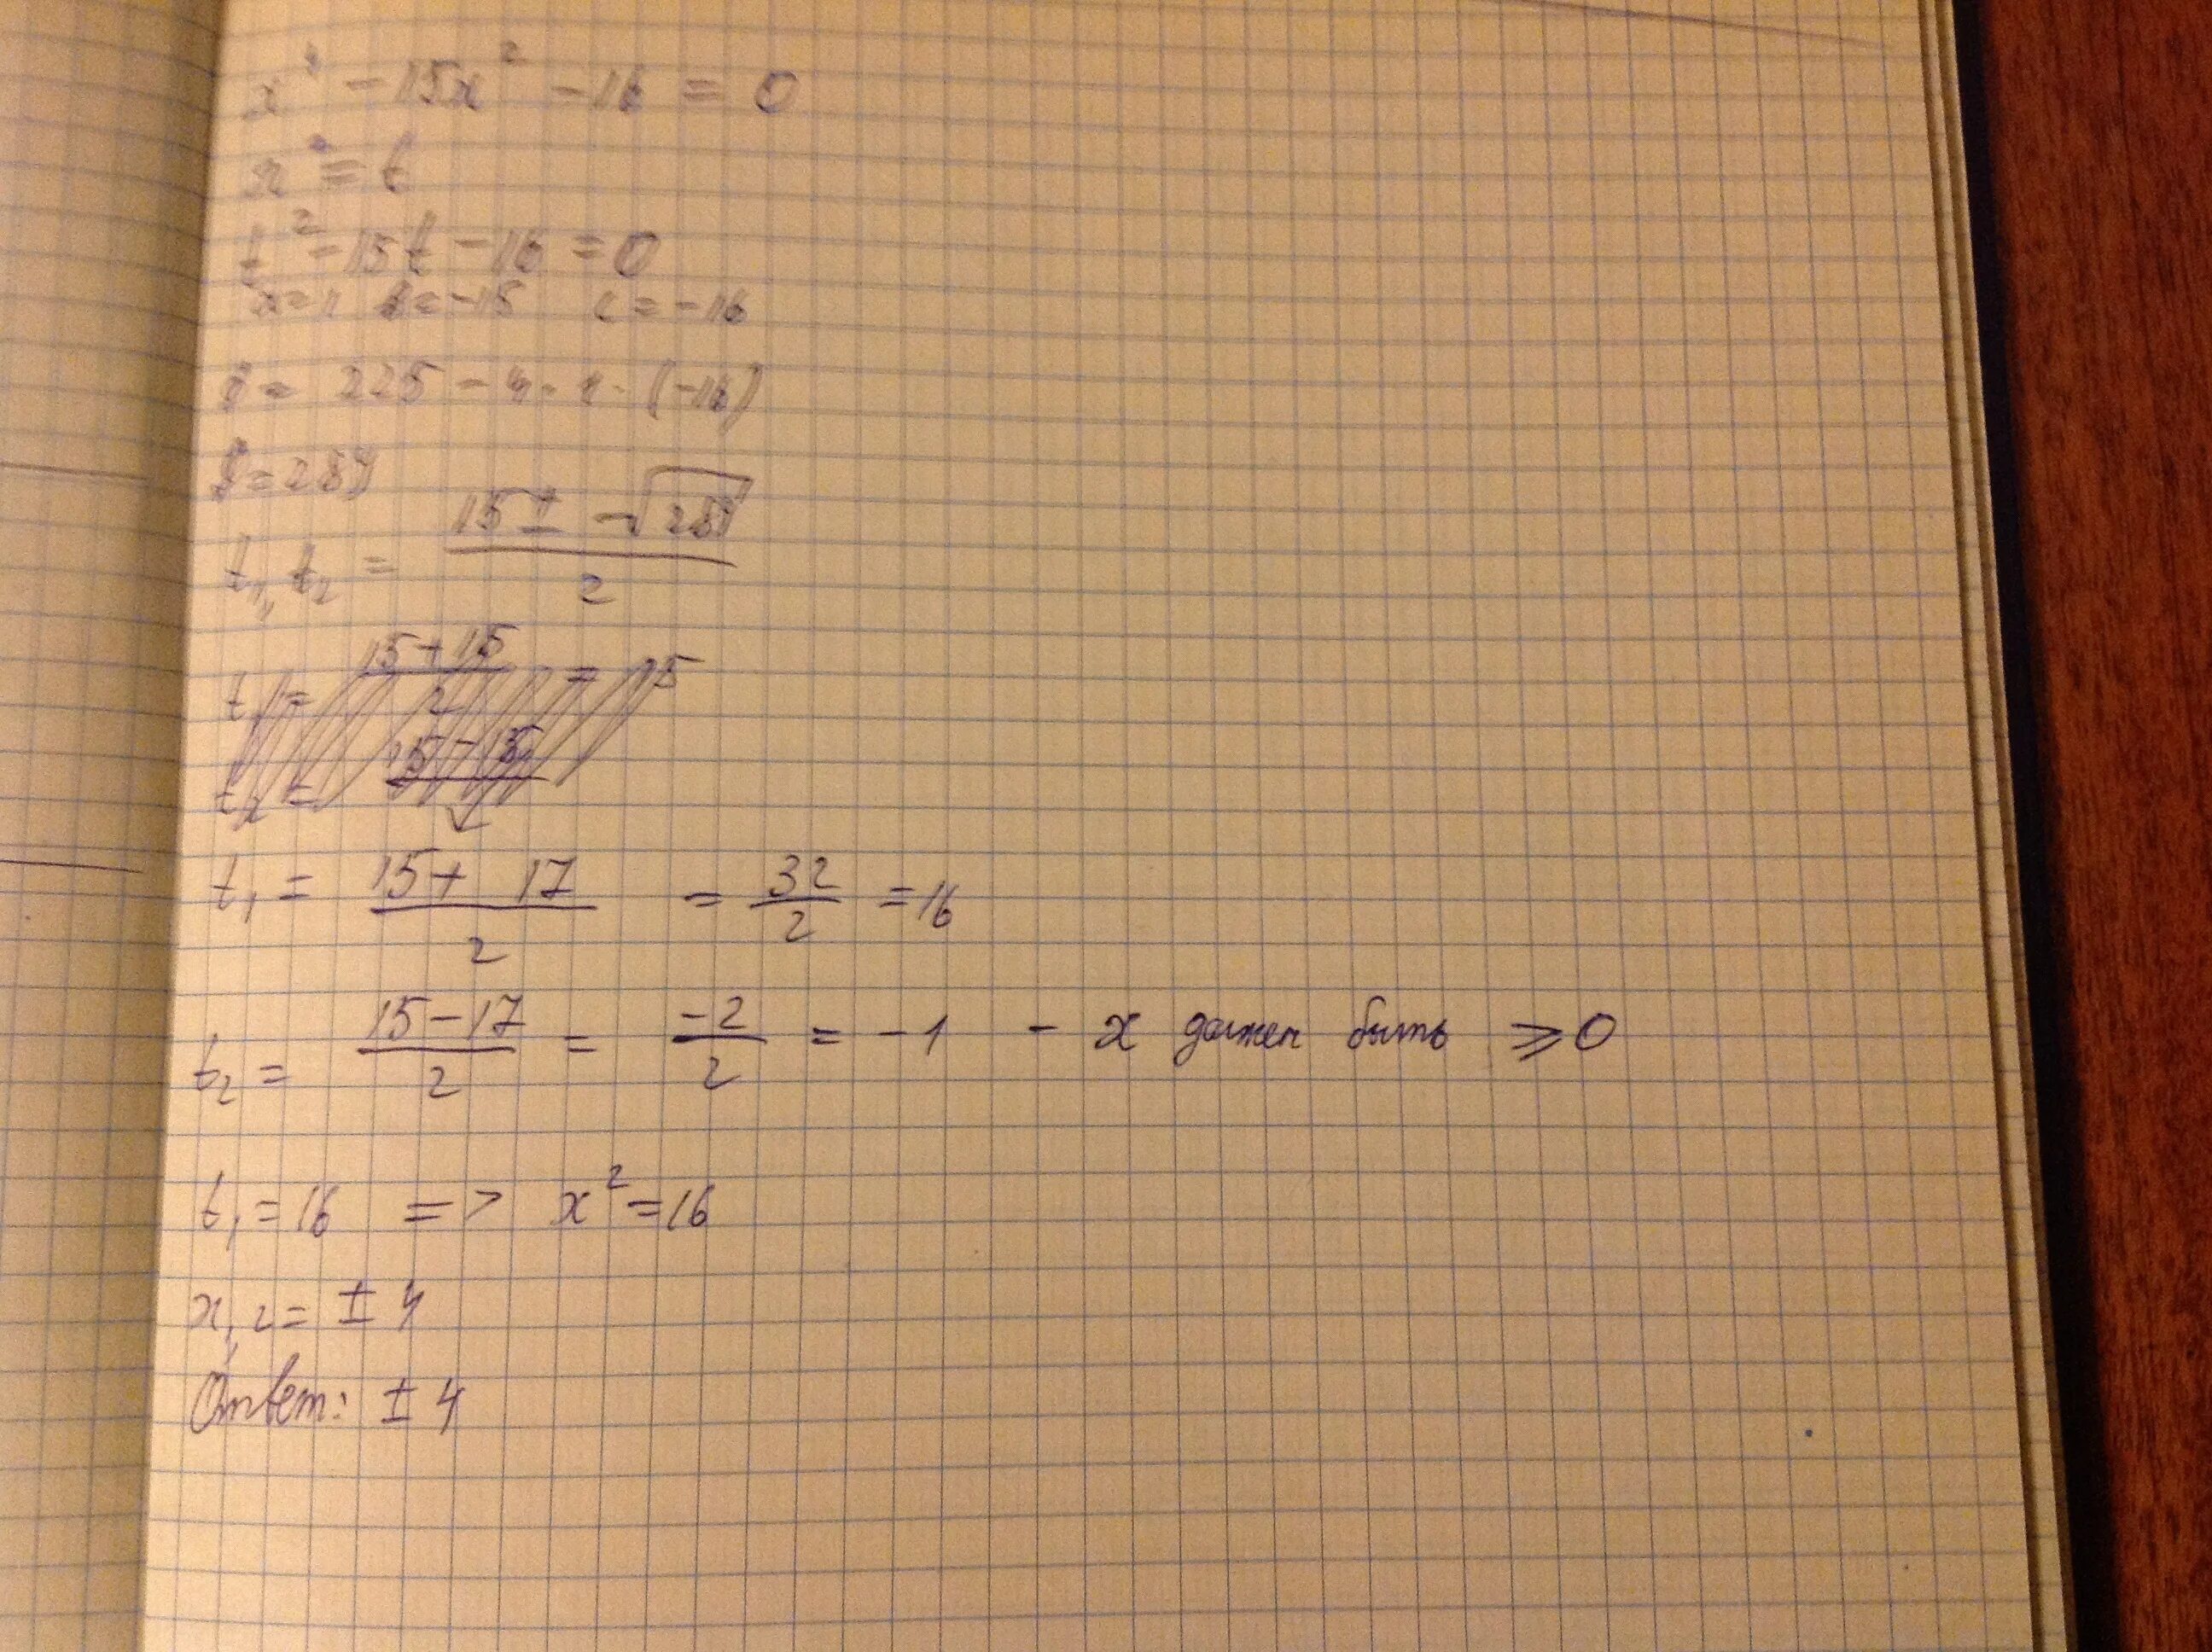 x⁴ - 15x² - 16 = 0
x² = t
t² - 15t - 16 = 0
a=1 b=-15 c=-16
D = 225 - 4·1·(-16)
D = 289
t₁, t₂ = (15 ± -√289)/2
t₁ = (15+15)/2 = 15
t₂ = (15-15)/2
t₁ = (15+ 17)/2 = 32/2 = 16
t₂ = (15-17)/2 = -2/2 = -1 - x должен быть ⩾ 0
t₁ = 16 => x² = 16
x₁,₂ = ± 4
Ответ: ± 4